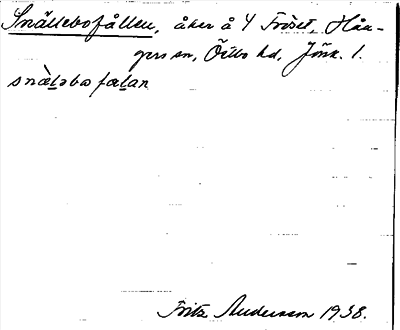 Snällebofållen, åker å 4 Fröset, Hån-
gers sn, Östbo hd, Jönk. l.
snä̀ləbofalan
Fritz Andersson 1938.